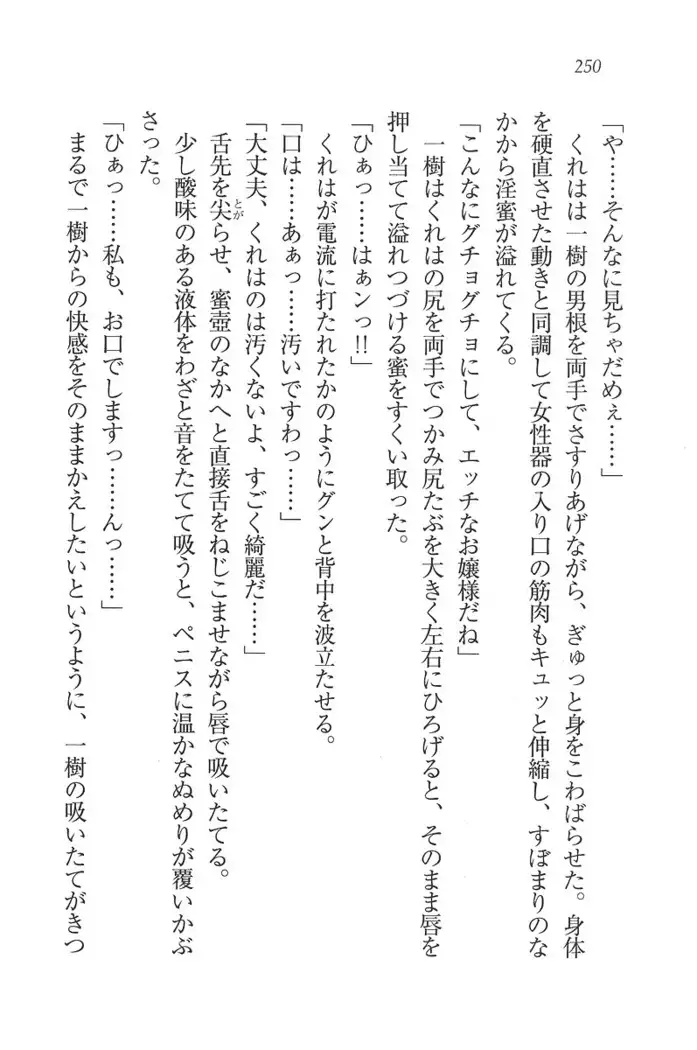 250
「や……そんなに見ちゃだめぇ……」
くれはは一樹の男根を両手でさすりあげながら、ぎゅっと身をこわばらせた。身体
を硬直させた動きと同調して女性器の入り口の筋肉もキュッと伸縮し、すぼまりのな
かから淫蜜が溢れてくる。
「こんなにグチョグチョにして、エッチなお嬢様だね」
一樹はくれはの尻を両手でつかみ尻たぶを大きく左右にひろげると、そのまま唇を
押し当てて溢れつづける蜜をすくい取った。
「ひぁっ……はぁンっ!!」
くれはが電流に打たれたかのようにグンと背中を波立たせる。
「口は……あぁっ……汚いですわっ……」
「大丈夫、くれはのは汚くないよ、すごく綺麗だ……」
舌先を尖らせ、蜜壺のなかへと直接舌をねじこませながら唇で吸いたてる。
とが
少し酸味のある液体をわざと音をたてて吸うと、ペニスに温かなぬめりが覆いかぶ
さった。
「ひぁっ……私も、お口でしますっ……んっ……」
まるで一樹からの快感をそのままかえしたいというように、一樹の吸いたてがきつ